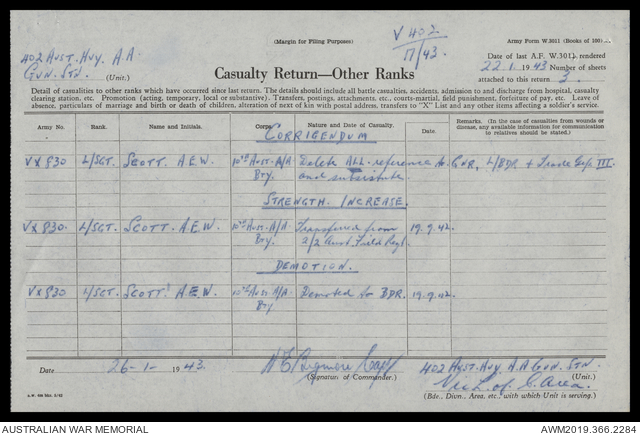 V 402
17/43
(Margin for Filing Purposes)
Army Form W.3011 (Books of 100)
402 Aust. Hvy. A.A.
Gun. Stn. (Unit.)
Date of last A.F. W.3011 rendered
22.1. 1943 Number of sheets
attached to this return 3.
Casualty Return—Other Ranks
Detail of casualties to other ranks which have occurred since last return. The details should include all battle casualties, accidents, admission to and discharge from hospital, casualty
clearing station, etc. Promotion (acting, temporary, local or substantive). Transfers, postings, attachments, etc., courts-martial, field punishment, forfeiture of pay, etc. Leave of
absence, particulars of marriage and birth or death of children, alteration of next of kin with postal address, transfers to "X" List and any other items affecting a soldier's service.
Army No. Rank. Name and Initials. Corps. Nature and Date of Casualty. Date. Remarks. (In the case of casualties from wounds or
disease, any available information for communication
to relatives should be stated.)
CORRIGENDUM
VX830 L/SGT. SCOTT. A.E.W. 10th Aust. A/A Delete ALL reference to GNR, L/BDR + Trade Gp. III.
Bty. and substitute.
STRENGTH INCREASE.
VX830. L/SGT. SCOTT. A.E.W. 10th Aust. A/A Transferred from 19.9.42.
Bty. 2/2 Aust. Field Regt.
DEMOTION.
VX830 L/SGT. SCOTT. A.E.W. 10th Aust. A/A Demoted to BDR. 19.9.42.
Bty
Date 26-1- 1943. Capt 402 Aust. Hvy. A.A Gun. Stn.
(Signature of Commander.) (Unit.)
Vic L. of C. Area.
(Bde., Divn., Area, etc., with which Unit is serving.)
AUSTRALIAN WAR MEMORIAL AWM2019.366.2284